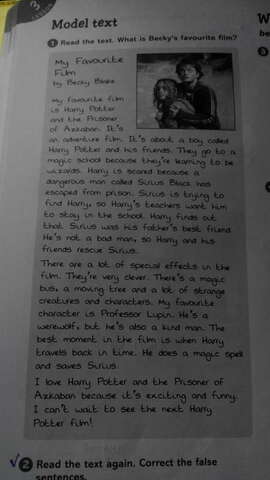 3
Model text
1 Read the text. What is Becky's favourite film?
My Favourite
Film
by Becky Blake
My favourite film
is Harry Potter
and the Prisoner
of Azkaban. It's
an adventure film. It's about a boy called
Harry Potter and his friends. They go to a
magic school because they're learning to be
wizards. Harry is scared because a
dangerous man called Sirius Black has
escaped from prison. Sirius is trying to
find Harry, so Harry's teachers want him
to stay in the school. Harry finds out
that Sirius was his father's best friend.
He's not a bad man, so Harry and his
friends rescue Sirius.
There are a lot of special effects in the
film. They're very clever. There's a magic
bus, a moving tree and a lot of strange
creatures and characters. My favourite
character is Professor Lupin. He's a
werewolf, but he's also a kind man. The
best moment in the film is when Harry
travels back in time. He does a magic spell
and saves Sirius.
I love Harry Potter and the Prisoner of
Azkaban because it's exciting and funny.
I can't wait to see the next Harry
Potter film!
2 Read the text again. Correct the false
sentences.
W
be